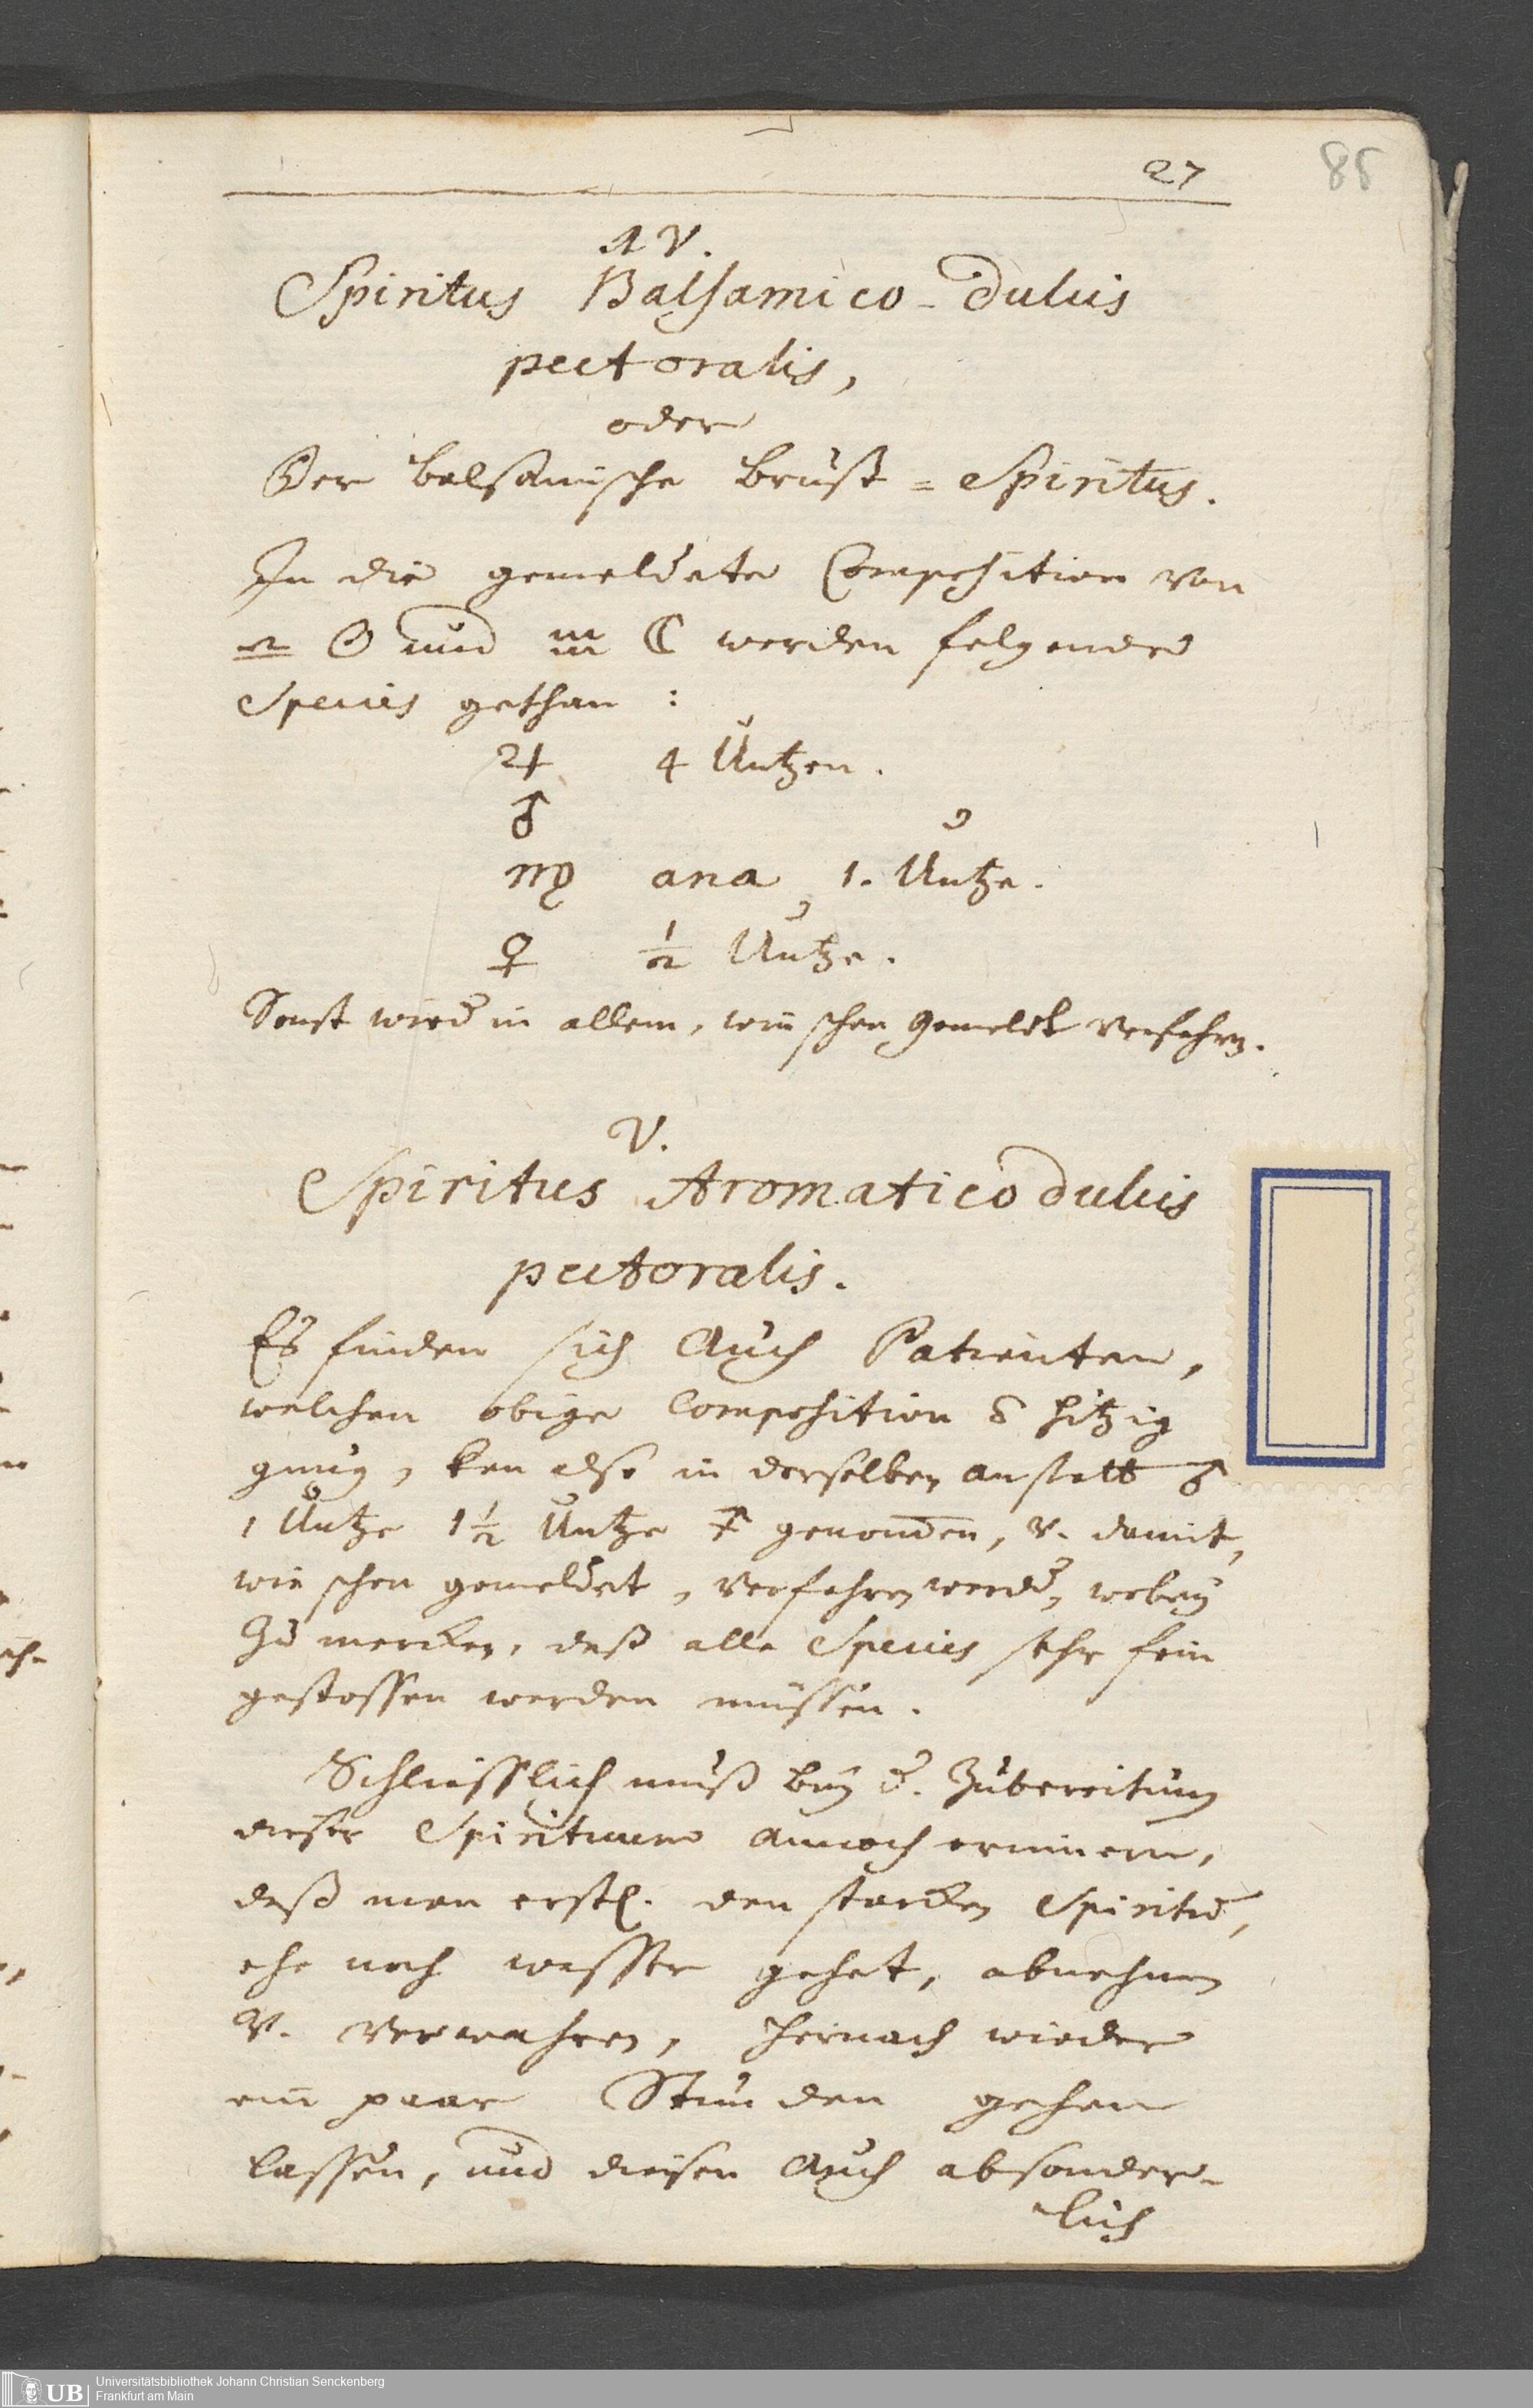 27
85
IV.
Spiritus Balsamico-Dulcis
pectoralis,
oder
Der balsamische Brust = Spiritus.
In die gemeldete Composition von
♎ ☉ und ♒ ☾ werden folgende
Species gethan :
♃ 4 Untzen.
♂
♍ ana 1. Untze.
♀ ½ Untze.
Sonst wird in allem, wie schon gemeldt verfahren.
V.
Spiritus Aromatico dulcis
pectoralis.
Es finden sich auch Patienten,
welchen obige Composition zu hitzig
gnug, kan also in derselben anstatt ♂
1 Untze 1½ Untze genommen, v. damit,
wie schon gemeldet, verfahren werden, wobey
zu mercken, daß alle Species sehr fein
gestossen werden müssen.
Schliesslich muß bey d. Zubereitung
dieser Spirituum annoch erinnern,
daß man erstl. den starcken Spiritum,
ehe noch wasser gehet, abnehmen
v. verwahren, hernach wieder
ein paar Stunden gehen
lassen, und diesen auch absonder-
lich
UB
Universitätsbibliothek Johann Christian Senckenberg
Frankfurt am Main